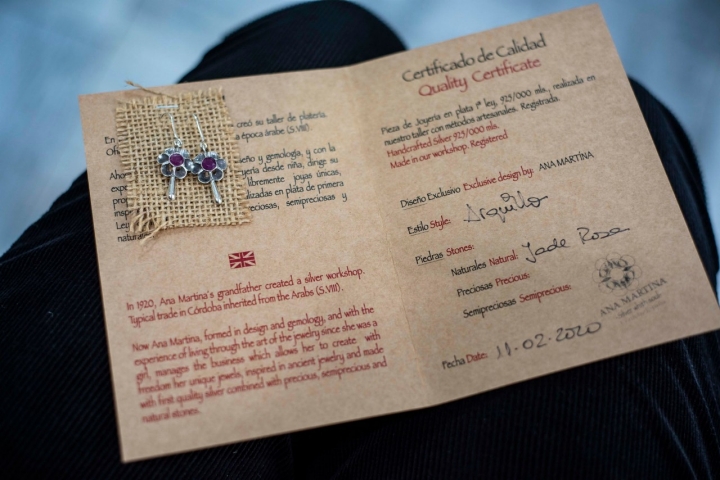 En
creó su taller de platería.
Ofi
a época árabe (S.VIII).
Aho
seño y gemología, y con la
expe
oyería desde niña, dirige su
prop
libremente joyas únicas,
insp
alizadas en plata de primera
Ley
eciosas, semipreciosas y
natural
In 1920, Ana Martina's grandfather created a silver workshop.
Typical trade in Córdoba inherited from the Arabs (S.VIII).
Now Ana Martina, formed in design and gemology, and with the
experience of living through the art of the jewelry since she was a
girl, manages the business which allows her to create with
freedom her unique jewels, inspired in ancient jewelry and made
with first quality silver combined with precious, semiprecious and
natural stones.
Certificado de Calidad
Quality Certificate
Pieza de Joyería en plata 1ª ley, 925/000 mls, realizada en
nuestro taller con métodos artesanales. Registrada.
Handcrafted Silver 925/000 mls.
Made in our workshop. Registered
Diseño Exclusivo Exclusive design by: ANA MARTINA
Estilo Style: Arquillo
Piedras Stones:
Naturales Natural: Jade Rosa
Preciosas Precious:
Semipreciosas Semiprecious:
ANA MARTINA
Fecha Date: 11-02-2020